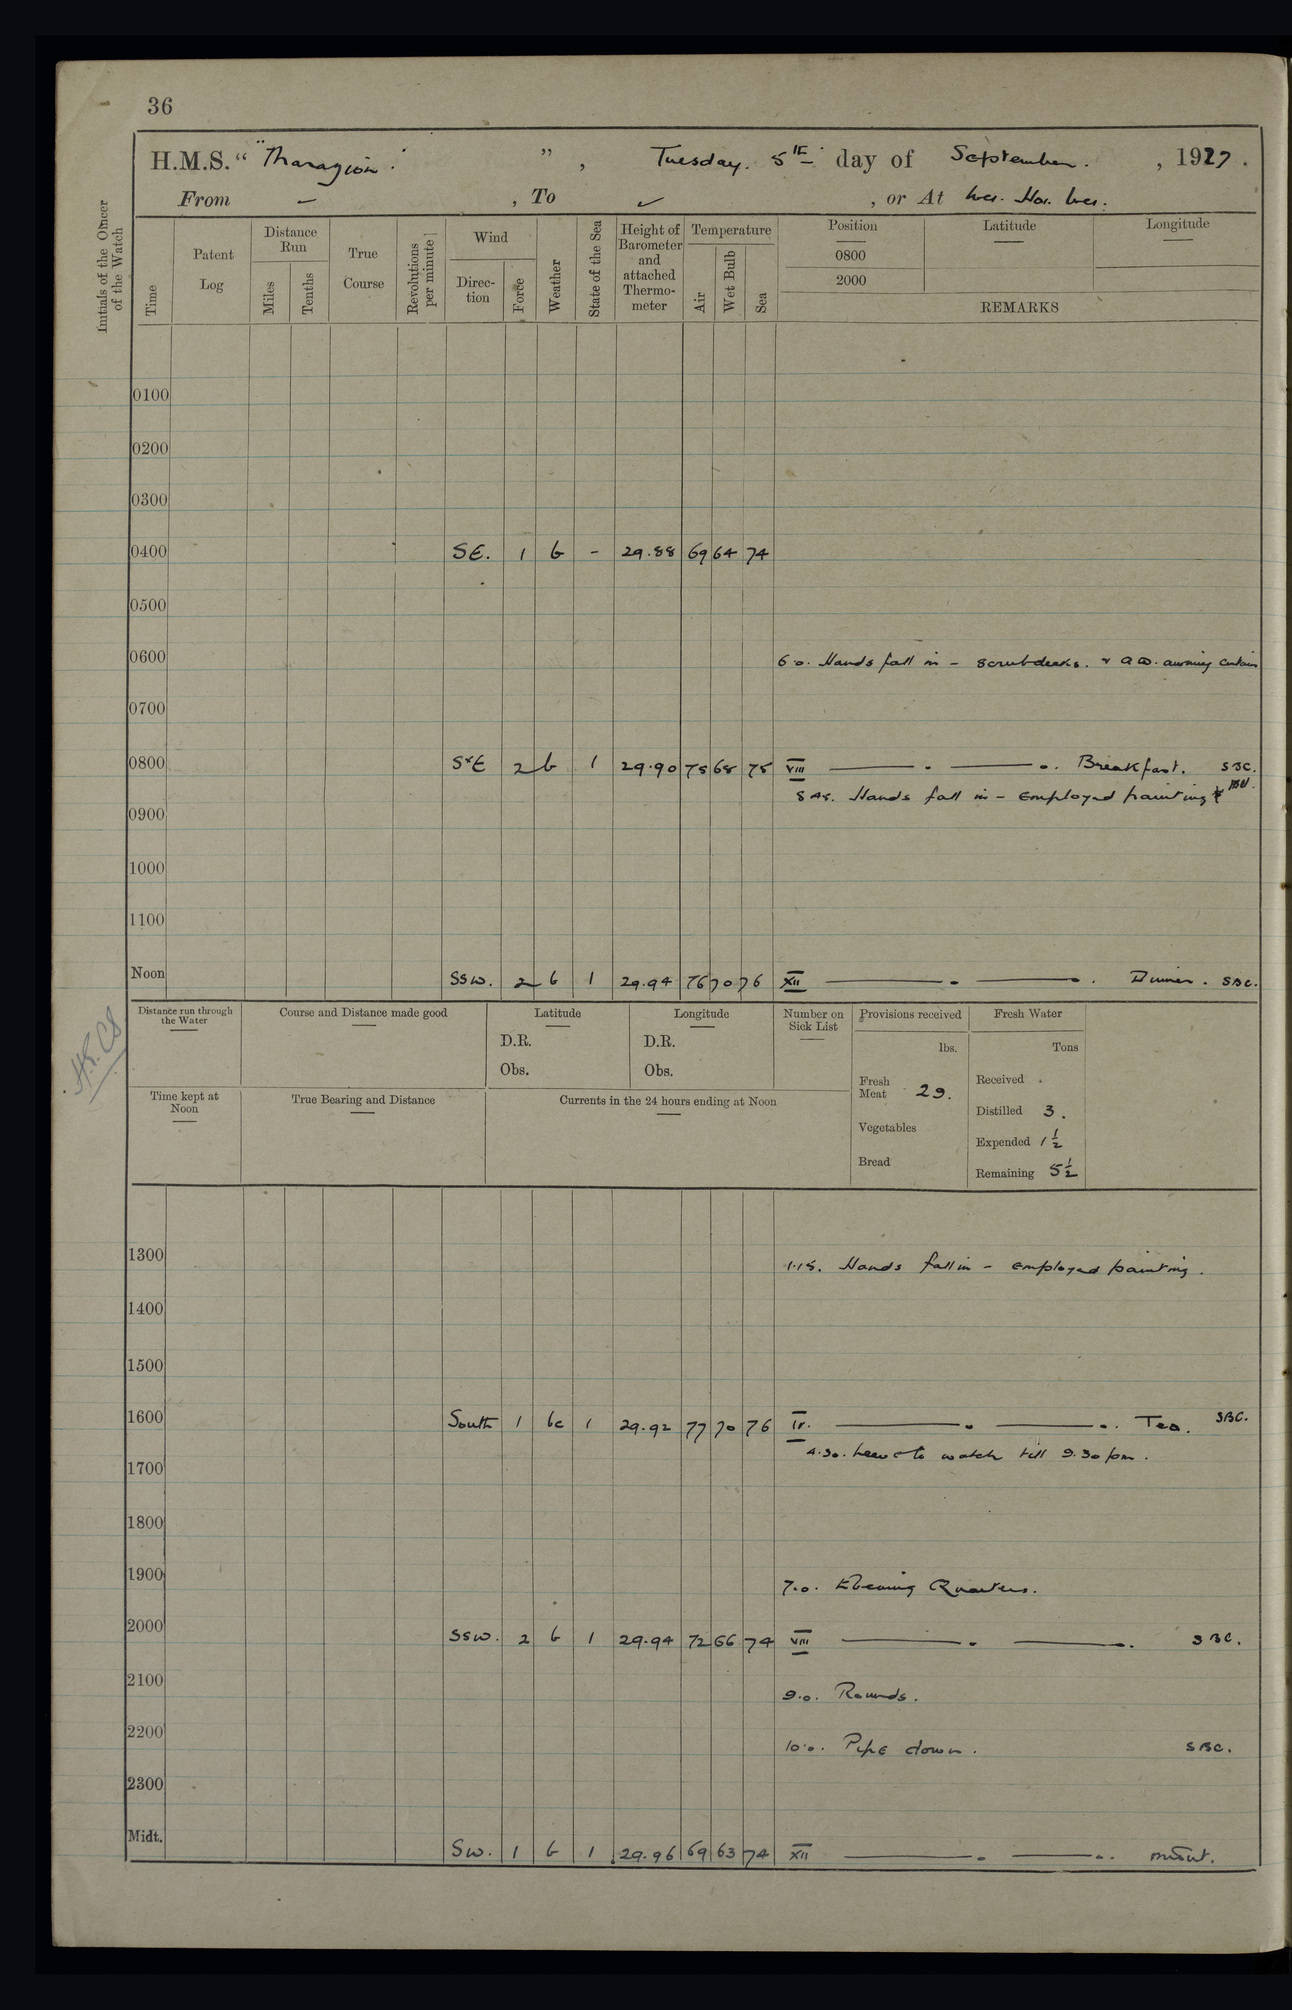 36
H.M.S. " " , Tuesday. 5th day of September. , 1927.
From – , To ✓ , or At
Initials of the Officer of the Watch
Time
Patent Log
Distance Run
Miles
Tenths
True Course
Revolutions per minute
Wind
Direction
Force
Weather
State of the Sea
Height of Barometer and attached Thermometer
Temperature
Air
Wet Bulb
Sea
Position
0800
2000
Latitude
Longitude
REMARKS
0100
0200
0300
0400 SE. 1 b - 29.88 69 64 74
0500
0600 6.0. Hands fall in - scrub decks. & awning
0700
0800 SxE 2 b 1 29.90 75 68 75 VIII Breakfast. SBC.
8.45. Hands fall in - Employed painting
0900
1000
1100
Noon SSW. 2 b 1 29.94 76 70 76 XII Dinner. SBC.
Distance run through the Water
Course and Distance made good
Latitude
D.R.
Obs.
Longitude
D.R.
Obs.
Number on Sick List
Provisions received
lbs.
Fresh Meat 29.
Vegetables
Bread
Fresh Water
Tons
Received .
Distilled 3.
Expended 1½
Remaining 5½
Time kept at Noon
True Bearing and Distance
Currents in the 24 hours ending at Noon
1300 1.15. Hands fall in - employed painting.
1400
1500
1600 South 1 bc 1 29.92 77 70 76 IV. Tea. SBC.
4.30. Leave to watch till 9.30 pm.
1700
1800
1900 7.0. Evening Quarters.
2000 SSW. 2 b 1 29.94 72 66 74 VIII SBC.
2100 9.0. Rounds.
2200 10.0. Pipe down. SBC.
2300
Midt. SW. 1 b 1 29.96 69 63 74 XII